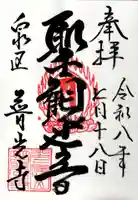 奉拝
令和八年
七月十八日
聖観世音
泉区